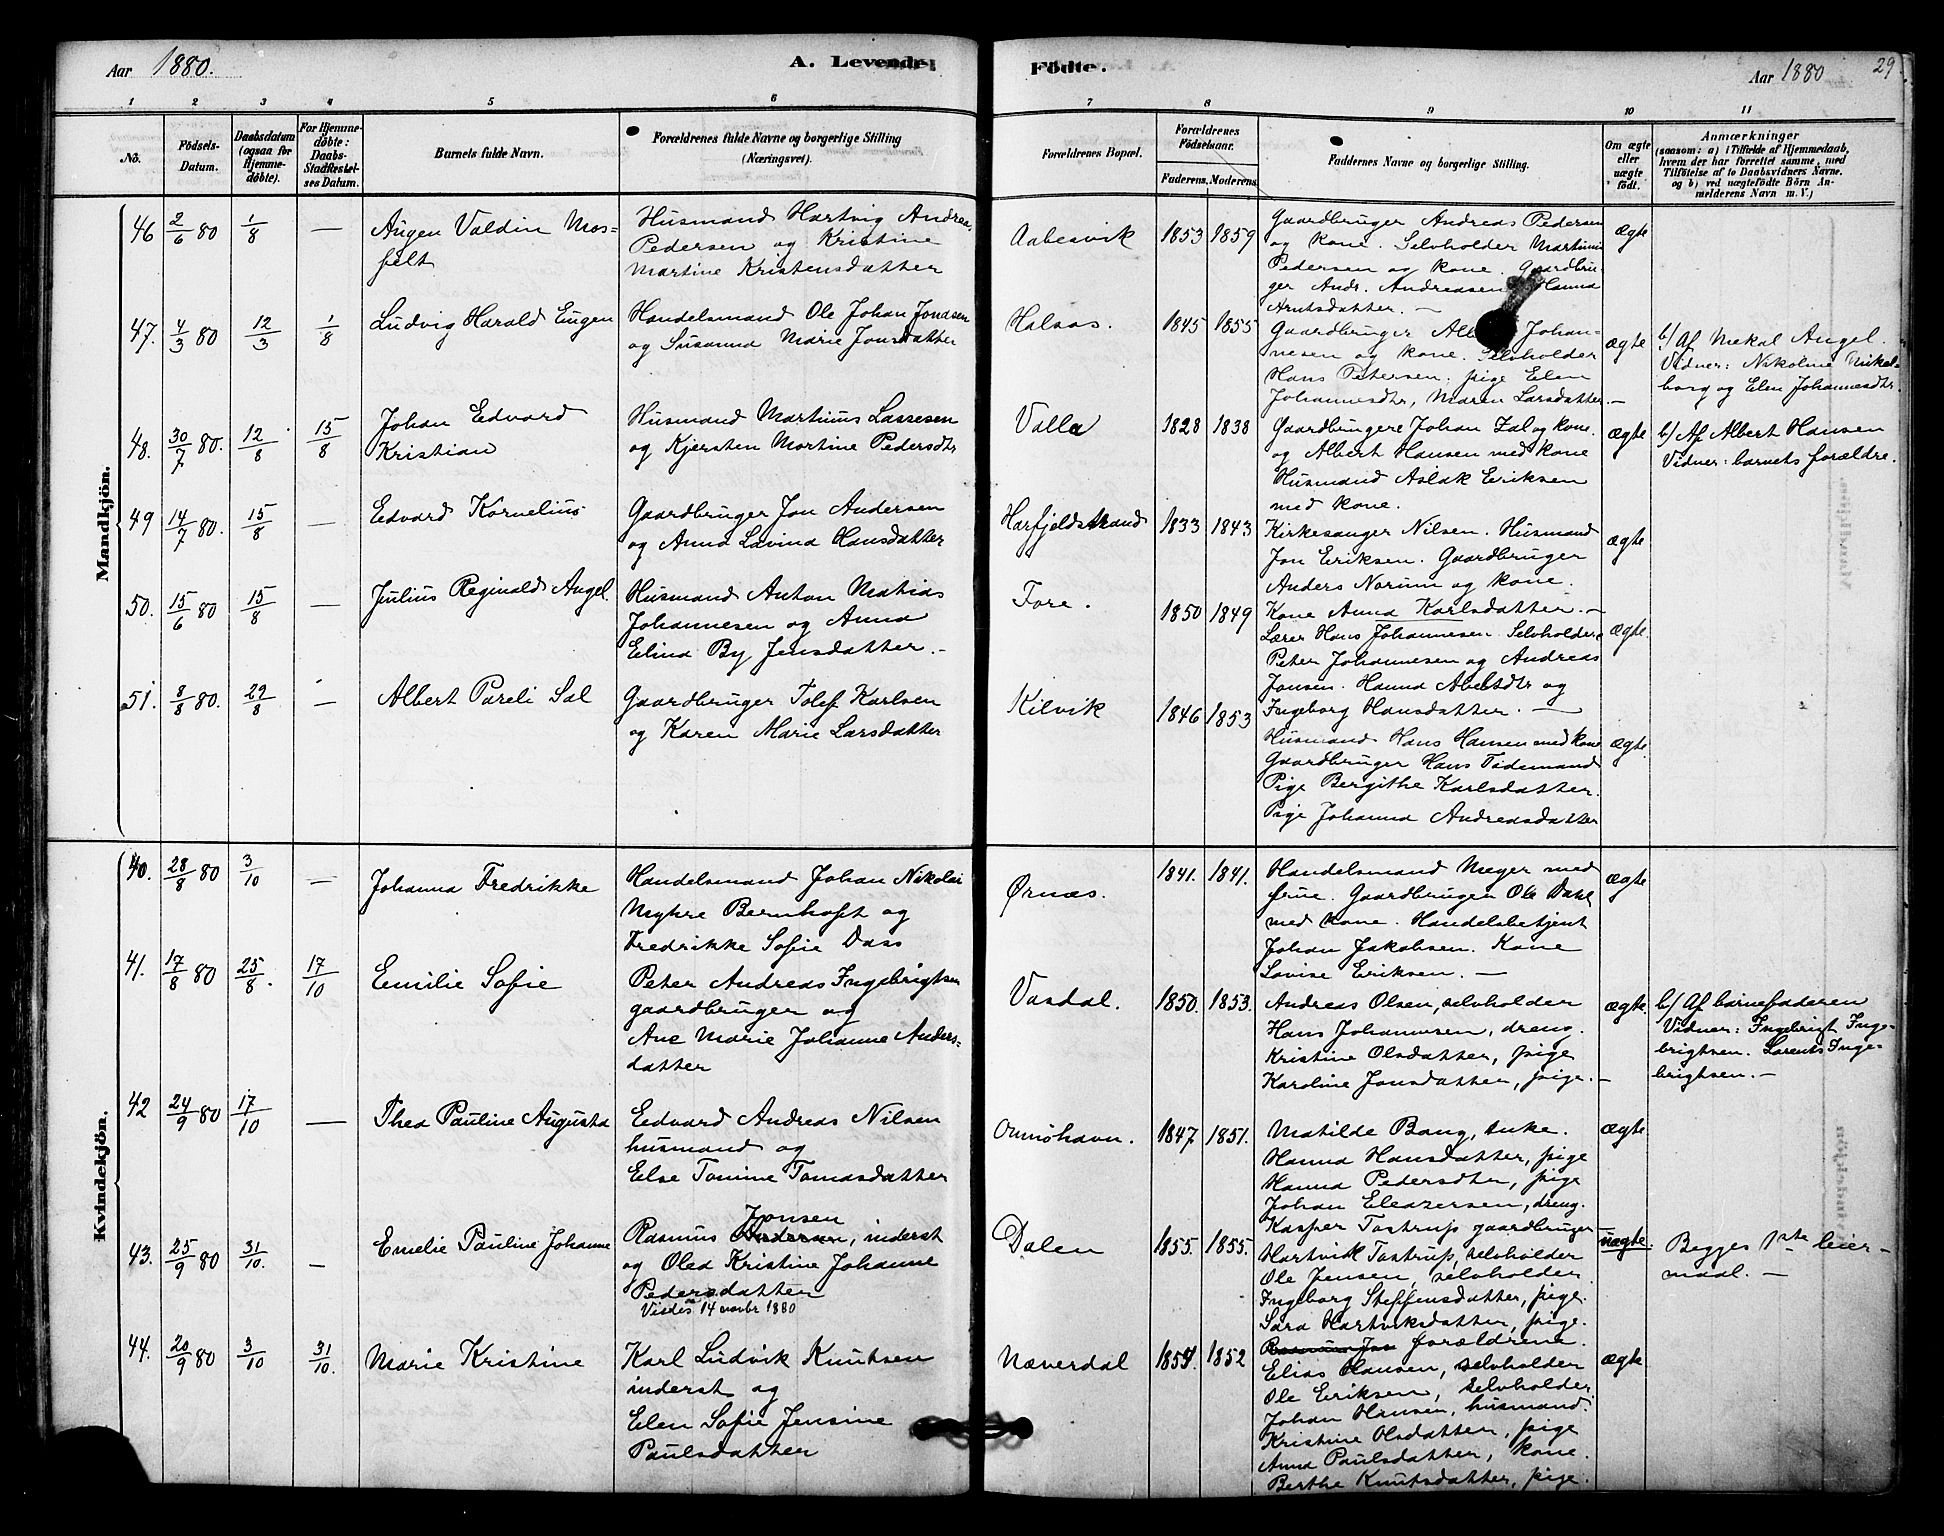 Aar 1880.
A. Levende
1 2 3 4 5 6
No.
Fødsels-
Datum.
Daabsdatum
(ogsaa for
Hjemme-
døbte).
For Hjemme-
døbte:
Daabs-
Stadfæstel-
ses Datum.
Barnets fulde Navn.
Forældrenes fulde Navne og borgerlige Stilling
(Næringsvei).
Mandkjøn.
46 2/6 80 1/8 — Augen Valdin Mos-
felt
Husmand Hartvig Andreas
Pedersen og Kristine
Martine Kristensdatter
47. 4/3 80 12/3 1/8 Ludvig Harald Eugen
Handelsmand Ole Johan Jonasen
og Susanna Marie Jonsdatter
48. 30/7 80. 12/8 15/8 Johan Edvard
Kristian
Husmand Martinus Lassesen
og Kjersten Martine Pedersdtr
49 14/7 80. 15/8 — Edvard Kornelius
Gaardbruger Jon Andersen
og Anna Lavina Hansdatter
50. 15/6 80 15/8 — Julius Reginald Angel.
Husmand Anton Matias
Johannesen og Anna
Elina By Jensdatter. -
51. 8/8 80. 29/8 — Albert Pareli Sal
Gaardbruger Tolef Karlsen
og Karen Marie Larsdatter
Kvindekjøn.
40. 28/8 80 3/10 — Johanna Fredrikke
Handelsmand Johan Nikolai
Myhre Bernhoft og
Fredrikke Sofie Dass
41. 17/8 80 25/8. 17/10 Emilie Sofie
Peter Andreas Ingebrigtsen
gaardbruger og
Ane Marie Johanne Anders-
datter
42 24/9 80 17/10 — Thea Pauline Augusta
Edvard Andreas Nilsen
husmand og
Else Tomine Tomasdatter
43. 25/9 80 31/10. — Emelie Pauline Johanne
Jonsen
Rasmus Andersen, inderst
og Olea Kristine Johanne
Pedersdatter
Viedes 14 novbr 1880
44. 20/9 80 3/10 31/10. Marie Kristine
Karl Ludvik Knutsen
inderst og
Elen Sofie Jensine
Paulsdatter
Fødte.
Aar 1880
29
7 8 9 10 11
Forældrenes Bopæl.
Forældrenes
Fødselsaar.
Faderens. Moderens.
Faddernes Navne og borgerlige Stilling.
Om ægte
eller
uægte
født.
Anmærkninger
(saasom: a) i Tilfælde af Hjemmedaab,
hvem der har forrettet samme, med
Tilføielse af to Daabsvidners Navne.
og b) ved uægtefødte Børn An-
melderens Navn m. V.)
Aabesvik 1853 1859
Gaardbruger Andreas Pedersen
og kone. Selvholder Martinus
Pedersen og kone. Gaardbru-
ger Andr. Andreasen Hanna
Arntsdatter. —
ægte
Halsos. 1845 1855
Gaardbruger Johan-
nesen og kone. Selvholder
Hans Petersen. pige Elen
Johannesdtr, Maren Larsdatter. —
ægte
b/ Af Mekal Angel.
Vidner: Nikoline Mikal-
borg og Elen Johannesdtr.
Valla 1828 1838
Gaardbrugere Johan Zal og kone.
og Albert Hansen med kone
Husmand Aslak Eriksen
med kone.
ægte
b/ Af Albert Hansen
Vidner: barnets forældre.
Harfjeldstrand 1833 1843
Kirkesanger Nilsen. Husmand
Jon Eriksen. Gaardbruger
Anders Norum og kone.
Kone Anna Karlsdatter. —
ægte
Fore. 1850 1849
Lærer Hans Johannesen. Selvholdere
Peter Johannesen og Andreas
Jonsen. Hanna Abelsdtr og
Ingeborg Hansdatter. —
ægte
Kilvik 1846 1853
Husmand Hans Hansen med kone
Gaardbruger Hans Tidemand
Pige Bergithe Karlsdatter.
Pige Johanna Andreasdatter
ægte
Ørnæs. 1841. 1841.
Handelsmand Meyer med
frue. Gaardbruger Ole Dahl
med kone. Handelsbetjent
Johan Jakobsen. Kone
Lovise Eriksen. —
ægte
Vasdal. 1850. 1853.
Andreas Olsen, selvholder
Hans Johannesen, dreng.
Kristine Olsdatter, pige
Karoline Jonsdatter, pige. —
ægte
b/ Af barnefaderen
Vidner: Ingebrigt Inge-
brigtsen. Lorents Inge-
brigtsen. —
Ormøhavn. 1847. 1851.
Matilde Bang, enke.
Hanna Hansdatter, pige
Hanna Pedersdtr, pige
Johan Eleazersen, dreng.
Kasper Tostrup gaardbruger
ægte
Dalen 1855. 1855.
Hartvik Tostrup, selvholder
Ole Jensen, selvholder
Ingeborg Steffensdatter, pige.
Sara Hartviksdatter, pige.
forældrene.
uægte.
Begges 1ste leier-
maal. —
Næverdal 1854. 1852
Elias Hansen, selvholder
Ole Eriksen, selvholder
Johan Hansen, husmand.
Kristine Olsdatter, pige
Anna Paulsdatter, kone.
Berthe Knutsdatter, pige.
ægte